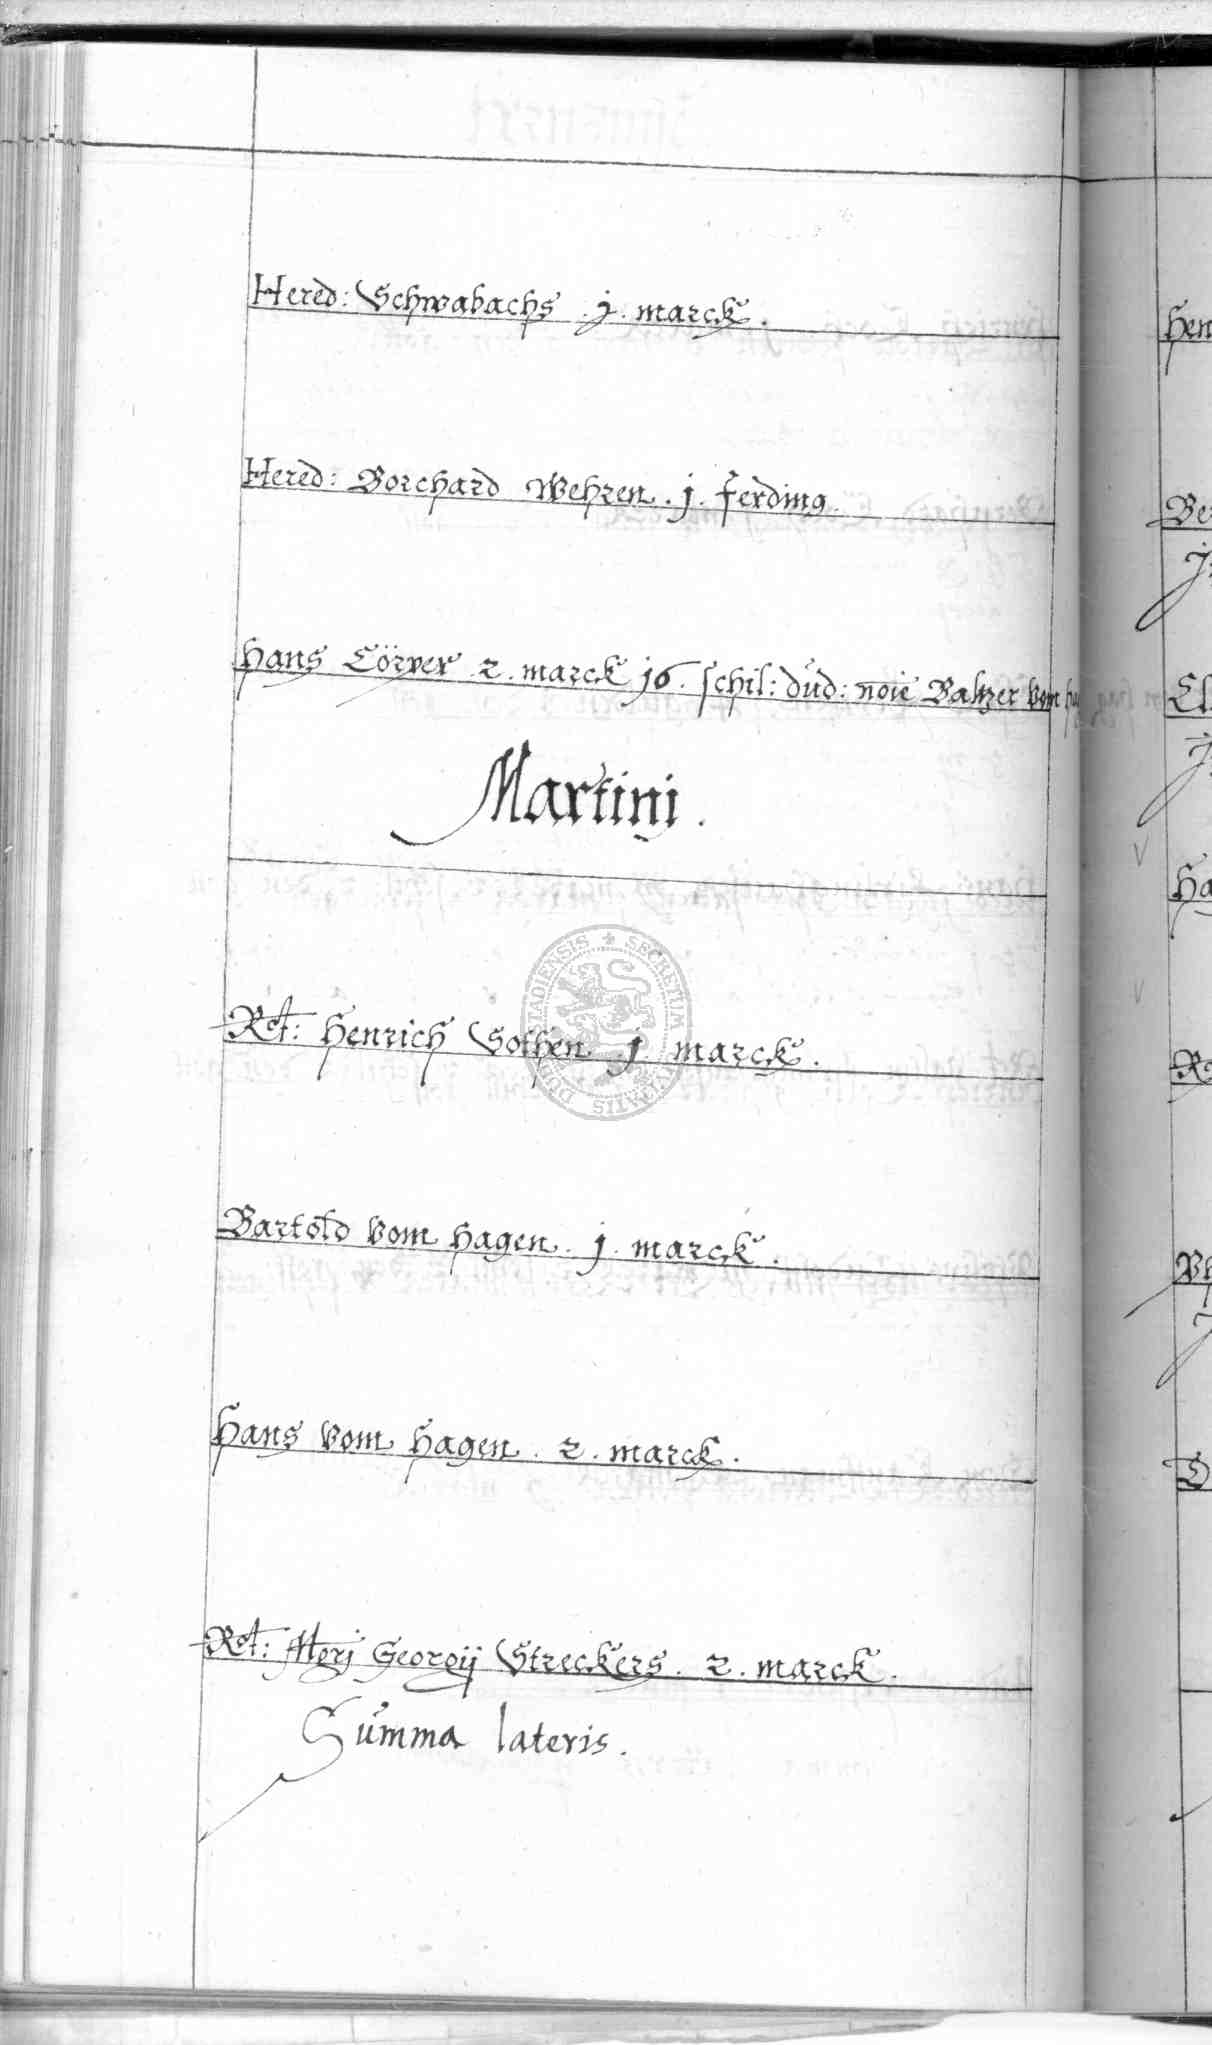 Hered: Schwabachs . j . marck .
Hered: Borchard Wehren . j . ferding .
Hans Cörver . 2 . marck 16 . schil: dud: noie Baltzer vom
Martini .
Rct: Henrich Sothen . j . marck .
Bartold vom Hagen . j . marck .
Hans vom Hagen . 2 . marck .
Rct: Mgrj Georgij Streckers . 2 . marck .
Summa lateris .
SECRETUM CIVITATIS DUDERSTADIENSIS